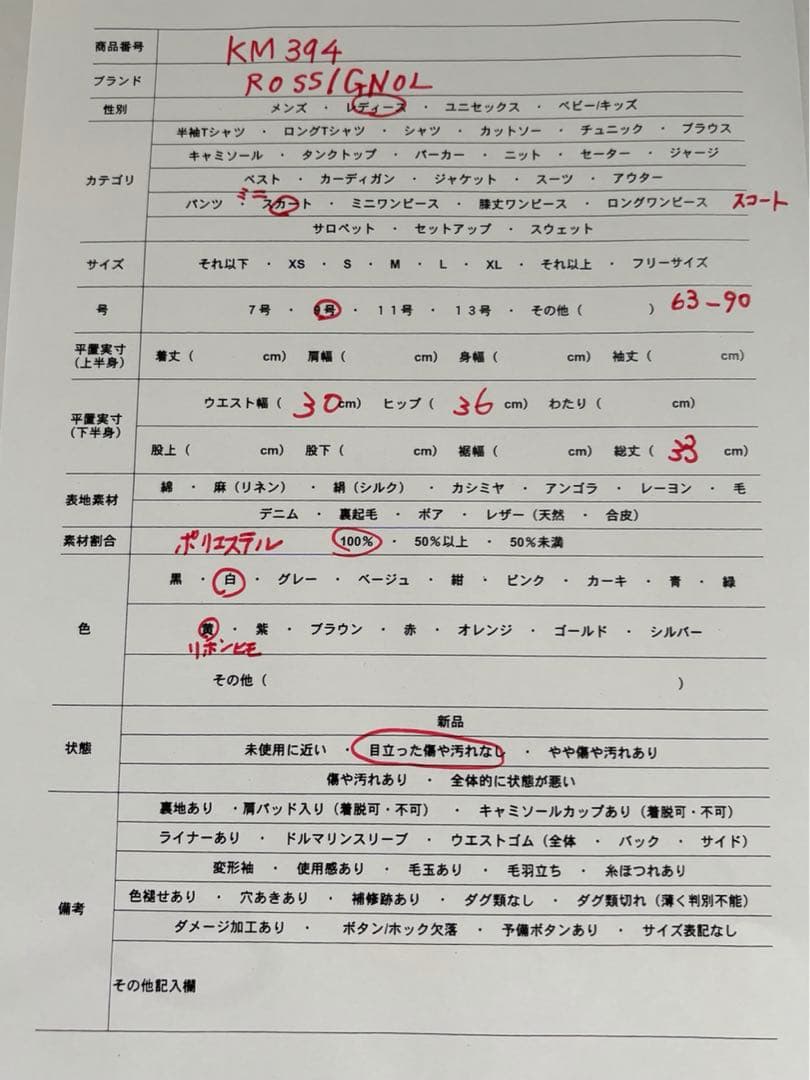 商品番号 KM394
ブランド ROSSIGNOL
性別 メンズ ・ レディース ・ ユニセックス ・ ベビー/キッズ
半袖Tシャツ ・ ロングTシャツ ・ シャツ ・ カットソー ・ チュニック ・ ブラウス
キャミソール ・ タンクトップ ・ パーカー ・ ニット ・ セーター ・ ジャージ
カテゴリ ベスト ・ カーディガン ・ ジャケット ・ スーツ ・ アウター
ミニ
パンツ ・ スカート ・ ミニワンピース ・ 膝丈ワンピース ・ ロングワンピース スコート
サロペット ・ セットアップ ・ スウェット
サイズ それ以下 ・ XS ・ S ・ M ・ L ・ XL ・ それ以上 ・ フリーサイズ
号 7号 ・ 9号 ・ 11号 ・ 13号 ・ その他 ( ) 63-90
平置実寸
(上半身) 着丈 ( cm) 肩幅 ( cm) 身幅 ( cm) 袖丈 ( cm)
ウエスト幅 ( 30 cm) ヒップ ( 36 cm) わたり ( cm)
平置実寸
(下半身)
股上 ( cm) 股下 ( cm) 裾幅 ( cm) 総丈 ( 33 cm)
綿 ・ 麻 (リネン) ・ 絹 (シルク) ・ カシミヤ ・ アンゴラ ・ レーヨン ・ 毛
表地素材
デニム ・ 裏起毛 ・ ボア ・ レザー (天然 ・ 合皮)
素材割合 ポリエステル 100% ・ 50%以上 ・ 50%未満
黒 ・ 白 ・ グレー ・ ベージュ ・ 紺 ・ ピンク ・ カーキ ・ 青 ・ 緑
色 黄 ・ 紫 ・ ブラウン ・ 赤 ・ オレンジ ・ ゴールド ・ シルバー
リボンヒモ
その他 ( )
新品
状態 未使用に近い ・ 目立った傷や汚れなし ・ やや傷や汚れあり
傷や汚れあり ・ 全体的に状態が悪い
裏地あり ・肩パッド入り (着脱可・不可) ・ キャミソールカップあり (着脱可・不可)
ライナーあり ・ ドルマリンスリーブ ・ ウエストゴム (全体 ・ バック ・ サイド)
変形袖 ・ 使用感あり ・ 毛玉あり ・ 毛羽立ち ・ 糸ほつれあり
備考 色褪せあり ・ 穴あきあり ・ 補修跡あり ・ ダグ類なし ・ ダグ類切れ (薄く判別不能)
ダメージ加工あり ・ ボタン/ホック欠落 ・ 予備ボタンあり ・ サイズ表記なし
その他記入欄